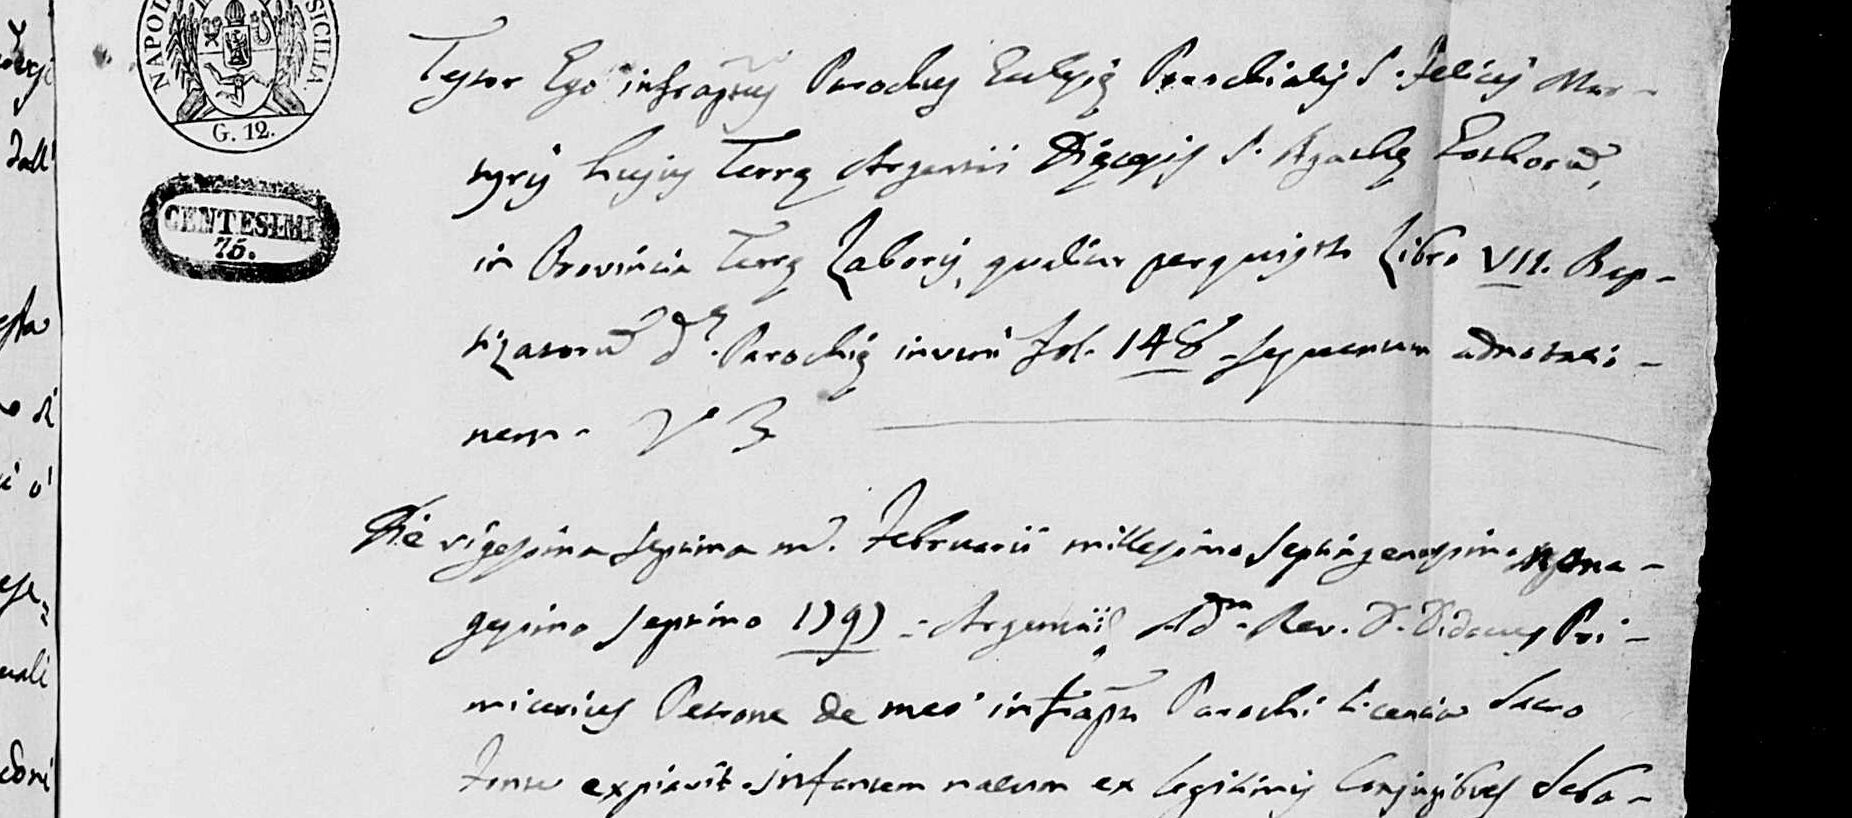 NAPOL SICILIA
G. 12.
CENTESIMI
75.
Testor Ego infraptus Parochus Ecclesię Parochialis S. Felicis Mar-
tyris hujus Terrę Argentii Dięcesis S. Agathę Gothorum,
in Provincia Terrę Laboris, qualiter perquisito Libro VII. Bap-
tizatorum d.ę Parochię inveni fol. 148 sequentem adnotatio-
nem. V3
Die vigesima septima m. Februarii millesimo septingentesimo nona-
gesimo septimo 1797 = Argentii Adm. Rev. D. Didacus Pri-
micerius Petrone de meo infrapti Parochi licentia Sacro
Fonte expiavit infantem natum ex legitimis Conjugibus Seba-